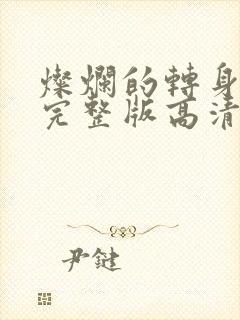 燦爛的轉身
完整版高清
尹鍵